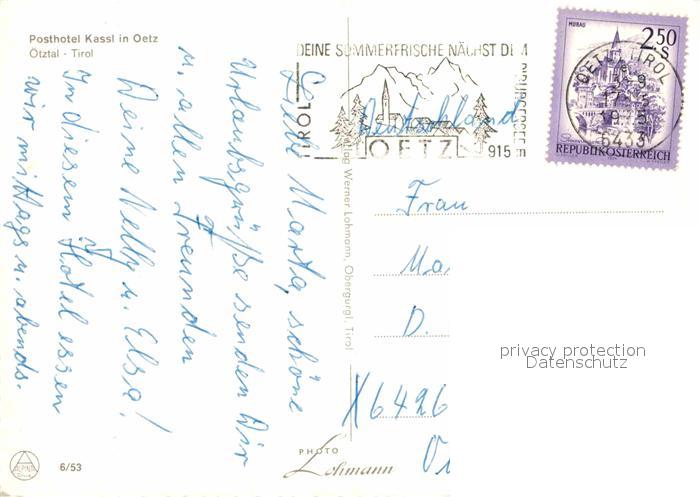 Posthotel Kassl in Oetz
Ötztal - Tirol
Liebe Marta, schöne
Urlaubsgrüße senden Wir
u. allen Freunden
Deine Nelly u. Elsa!
In diesem Hotel essen
wir mittags u. abends.
6/53
Verlag Werner Lohmann, Obergurgl, Tirol
PHOTO
Lohmann
DEINE SOMMERFRISCHE NÄCHST DEM
PIBURGERSEE
TIROL
OETZ
915
MURAU
2.50
S
REPUBLIK ÖSTERREICH
OETZ, TIROL
6433
Deutschland
Frau
Ma
D.
X6426
privacy protection
Datenschutz